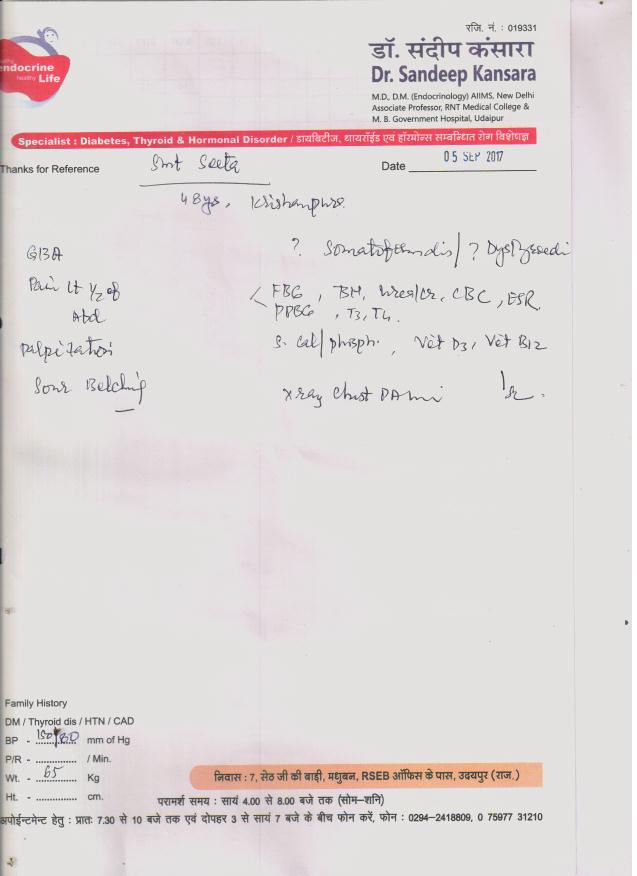 रजि. नं. : 019331
endocrine
healthy Life
डॉ. संदीप कंसारा
Dr. Sandeep Kansara
M.D., D.M. (Endocrinology) AIIMS, New Delhi
Associate Professor, RNT Medical College &
M. B. Government Hospital, Udaipur
Specialist : Diabetes, Thyroid & Hormonal Disorder / डायबिटीज, थायरॉईड एवं हॉरमोन्स सम्बन्धित रोग विशेषज्ञ
Thanks for Reference Smt Seeta Date 05 SEP 2017
48ys, Krishanpura
? /?
GBA
Pain Lt 1/2 of FBG, urea/cr, CBC, ESR
Abd PPBG, T3, T4.
Palpitation S. Cal/phosph., Vit D3, Vit B12
Sour Belching
Xray Chest PA
Family History
DM / Thyroid dis / HTN / CAD
BP - 150/80 mm of Hg
P/R - .............. / Min.
Wt. - 65 Kg
Ht. - .............. cm.
निवास : 7, सेठ जी की बाड़ी, मधुबन, RSEB ऑफिस के पास, उदयपुर (राज.)
परामर्श समय : सायं 4.00 से 8.00 बजे तक (सोम–शनि)
अपोईन्टमेन्ट हेतु : प्रातः 7.30 से 10 बजे तक एवं दोपहर 3 से सायं 7 बजे के बीच फोन करें, फोन : 0294-2418809, 0 75977 31210